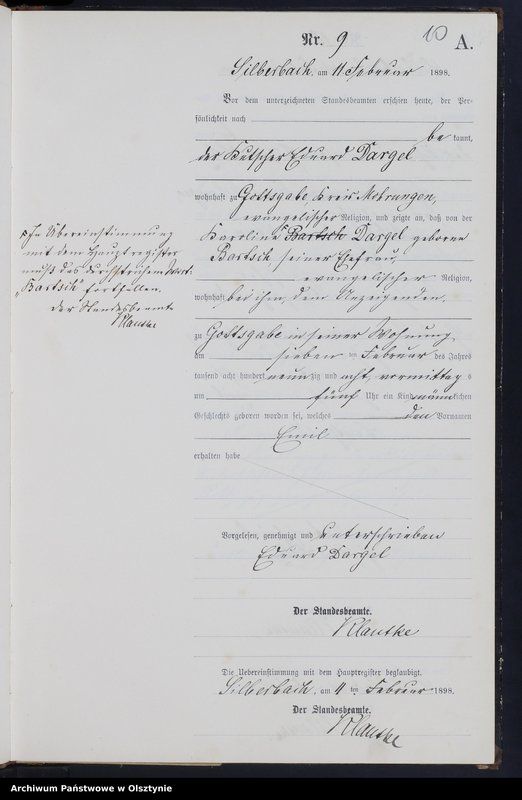 Nr. 9
10
A.
Silberbach, am 11 Februar 1898.
Vor dem unterzeichneten Standesbeamten erschien heute, der Per-
sönlichkeit nach
be kannt,
der Kutscher Eduard Dargel
wohnhaft zu Gottsgabe, Kreis Mohrungen,
evangelischer Religion, und zeigte an, daß von der
Karoline Bartsch Dargel geborene
Bartsch, seiner Ehefrau,
evangelischer Religion,
wohnhaft bei ihm, dem Anzeigenden,
zu Gottsgabe in seiner Wohnung
am sieben ten Februar des Jahres
tausend acht hundert neun zig und acht, vormittag s
um fünf Uhr ein Kind männlichen
Geschlechts geboren worden sei, welches den Vornamen
Emil
erhalten habe
In Übereinstimmung
mit dem Hauptregister
muß das durchstrichene Wort
"Bartsch" fortfallen.
Der Standesbeamte
Klautke
Vorgelesen, genehmigt und unterschrieben
Eduard Dargel
Der Standesbeamte.
Klautke
Die Uebereinstimmung mit dem Hauptregister beglaubigt.
Silberbach, am 11 ten Februar 1898.
Der Standesbeamte.
Klautke
Archiwum Państwowe w Olsztynie